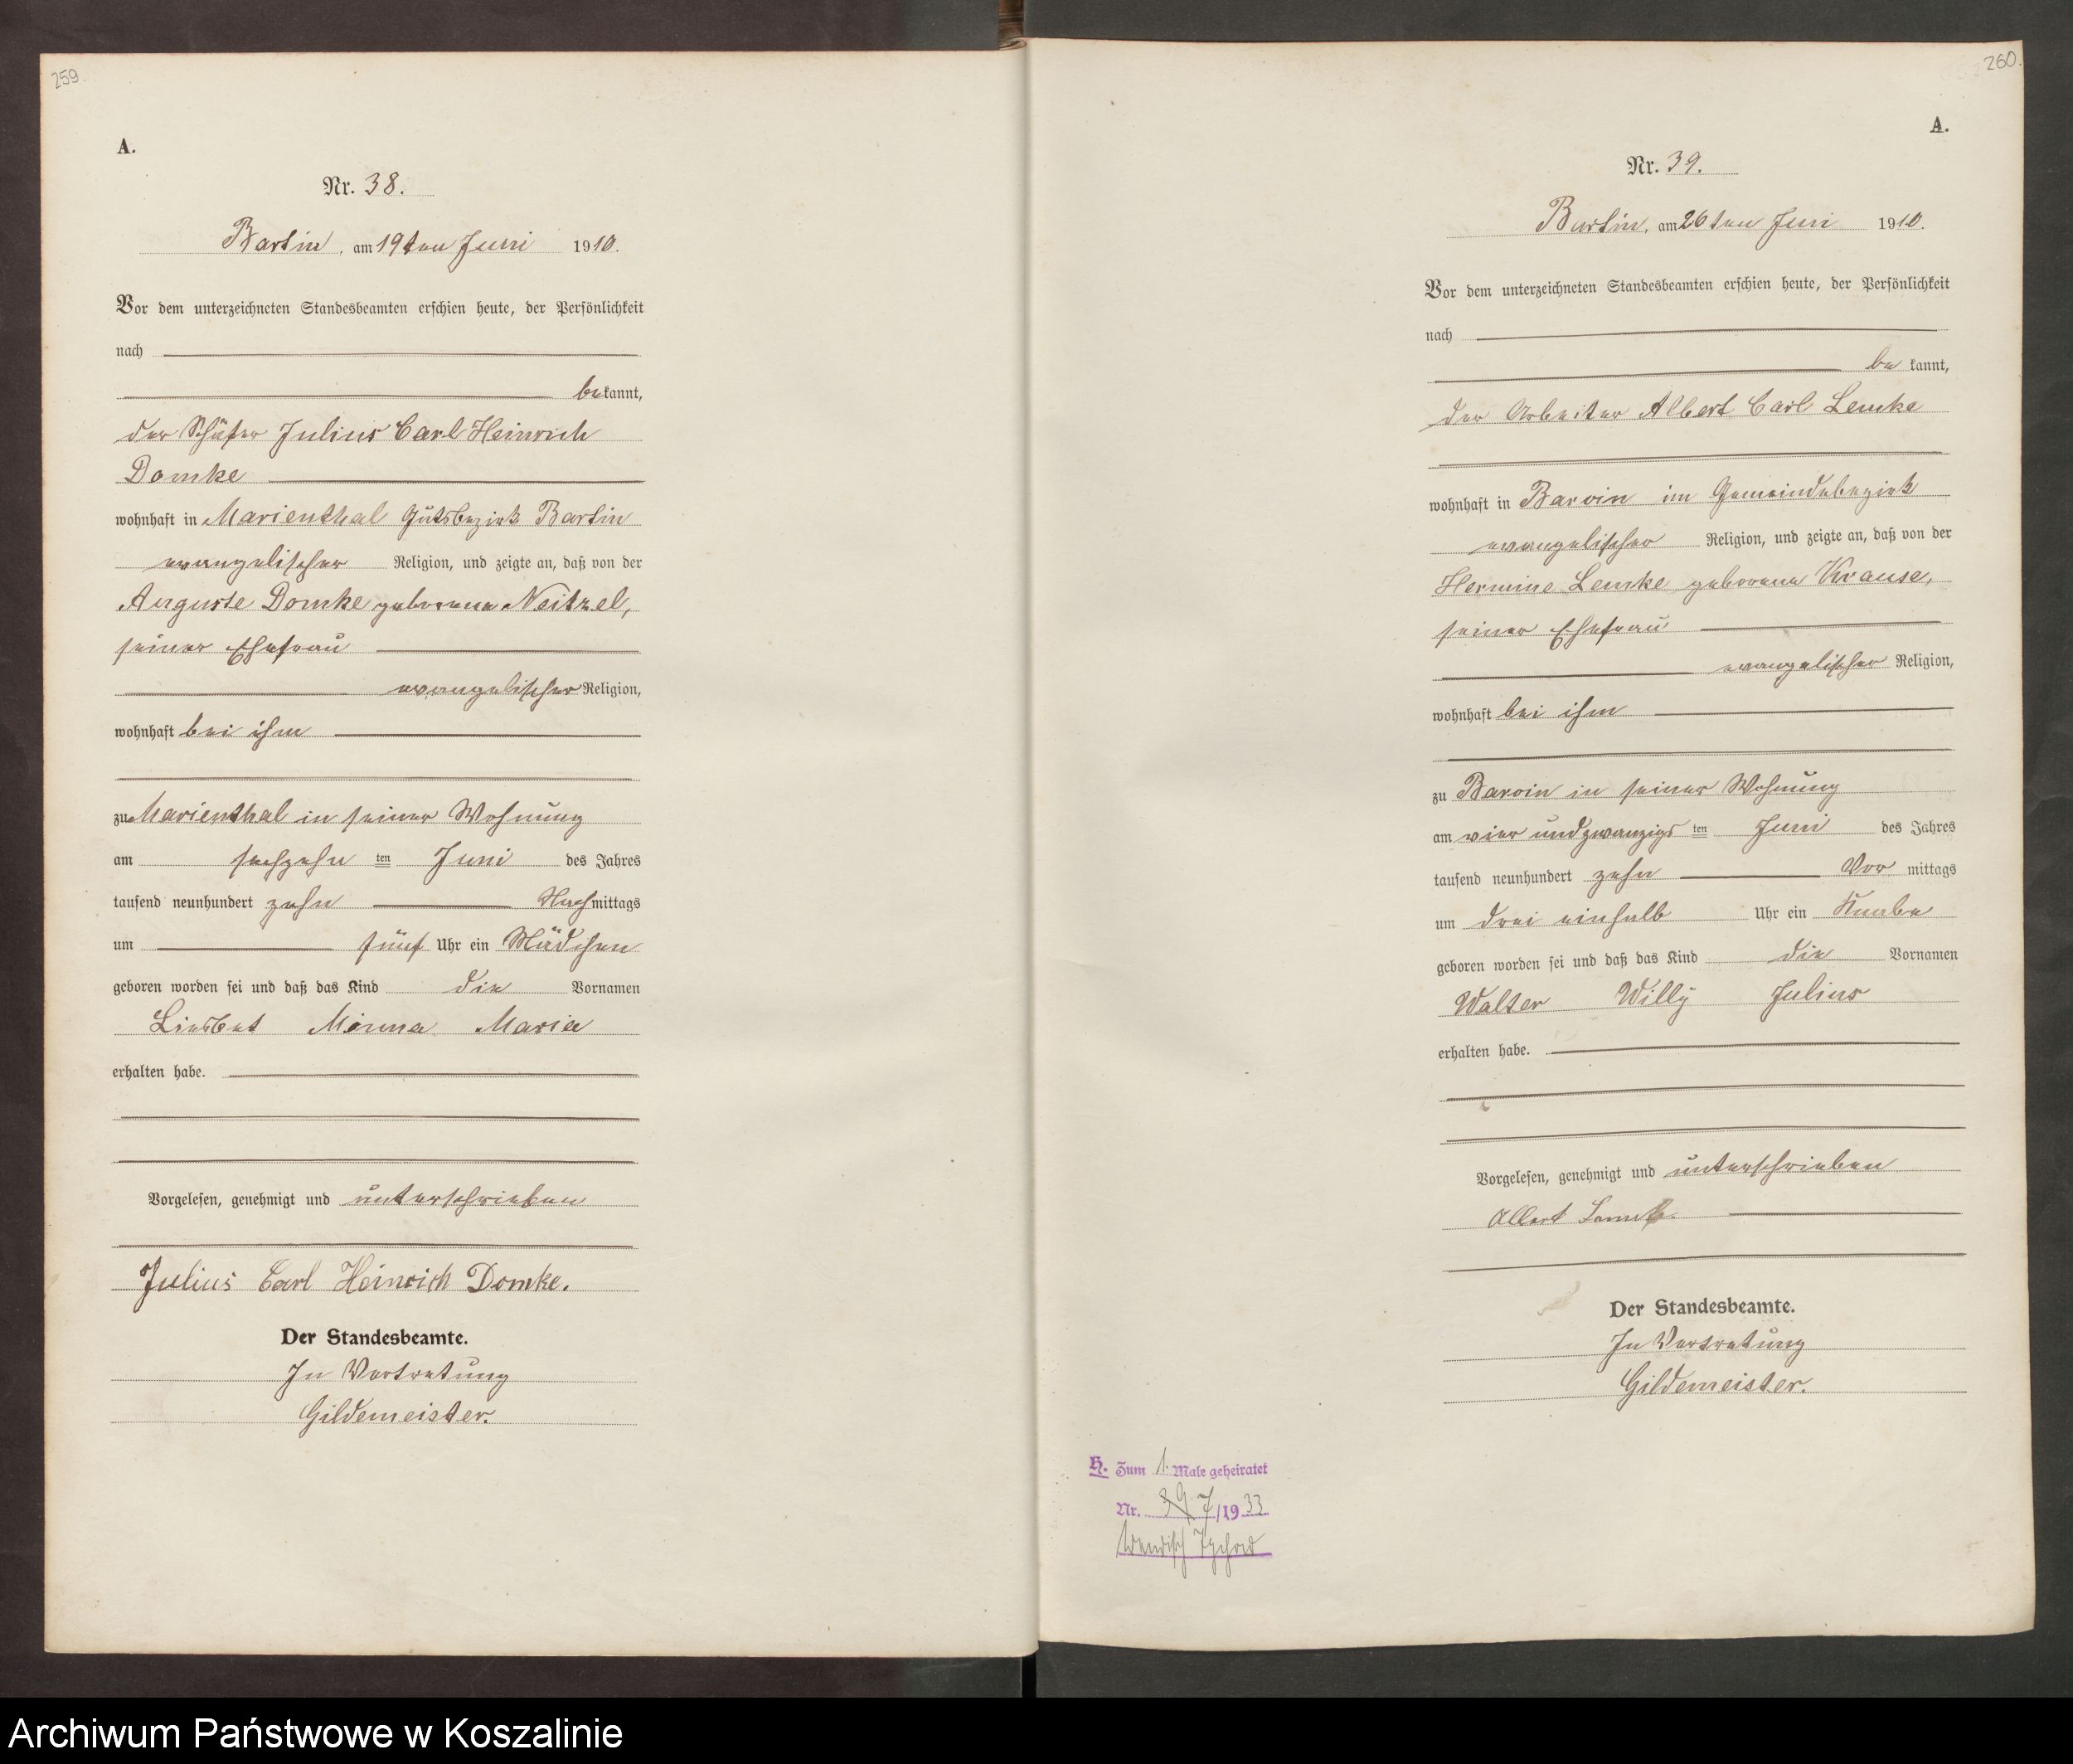 259.
A.
Nr. 38.
Bartin, am 19ten Juni 1910.
Vor dem unterzeichneten Standesbeamten erschien heute, der Persönlichkeit
nach
bekannt,
der Schäfer Julius Carl Heinrich
Domke
wohnhaft in Marienthal Gutsbezirk Bartin
evangelischer Religion, und zeigte an, daß von der
Auguste Domke geborene Neitzel,
seiner Ehefrau
evangelischer Religion,
wohnhaft bei ihm
zu Marienthal in seiner Wohnung
am sechzehn ten Juni des Jahres
tausend neunhundert zehn Nachmittags
um fünf Uhr ein Mädchen
geboren worden sei und daß das Kind die Vornamen
Liesbet Minna Marie
erhalten habe.
Vorgelesen, genehmigt und unterschrieben
Julius Carl Heinrich Domke.
Der Standesbeamte.
In Vertretung
Gildemeister.
260.
A.
Nr. 39.
Bartin, am 26ten Juni 1910.
Vor dem unterzeichneten Standesbeamten erschien heute, der Persönlichkeit
nach
be kannt,
der Arbeiter Albert Carl Lemke
wohnhaft in Barvin im Gemeindebezirk
evangelischer Religion, und zeigte an, daß von der
Hermine Lemke geborene Krause,
seiner Ehefrau
evangelischer Religion,
wohnhaft bei ihm
zu Barvin in seiner Wohnung
am vier und zwanzigs ten Juni des Jahres
tausend neunhundert zehn Vor mittags
um drei einhalb Uhr ein Knabe
geboren worden sei und daß das Kind die Vornamen
Walter Willy Julius
erhalten habe.
Vorgelesen, genehmigt und unterschrieben
Albert Lemke
Der Standesbeamte.
In Vertretung
Gildemeister.
H. Zum 1. Male geheiratet
Nr. 7/1933
Wendisch
Archiwum Państwowe w Koszalinie